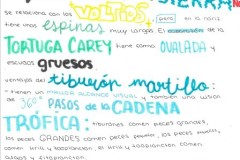 SIERRA
Se relaciona con los VOLTIOS para
tiene unas espinas muy largas. El
TORTUGA CAREY tiene como OVALADA y
escudos gruesos
ventajas del tiburón martillo:
tienen un mayor alcance visual y también una visión
de 360° PASOS de la CADENA
TRÓFICA: tiburones comen peces grandes,
los peces GRANDES comen peces pequeños, los peces
comen krill y zooplancton, el krill y zooplancton comen
algas y fitoplancton.